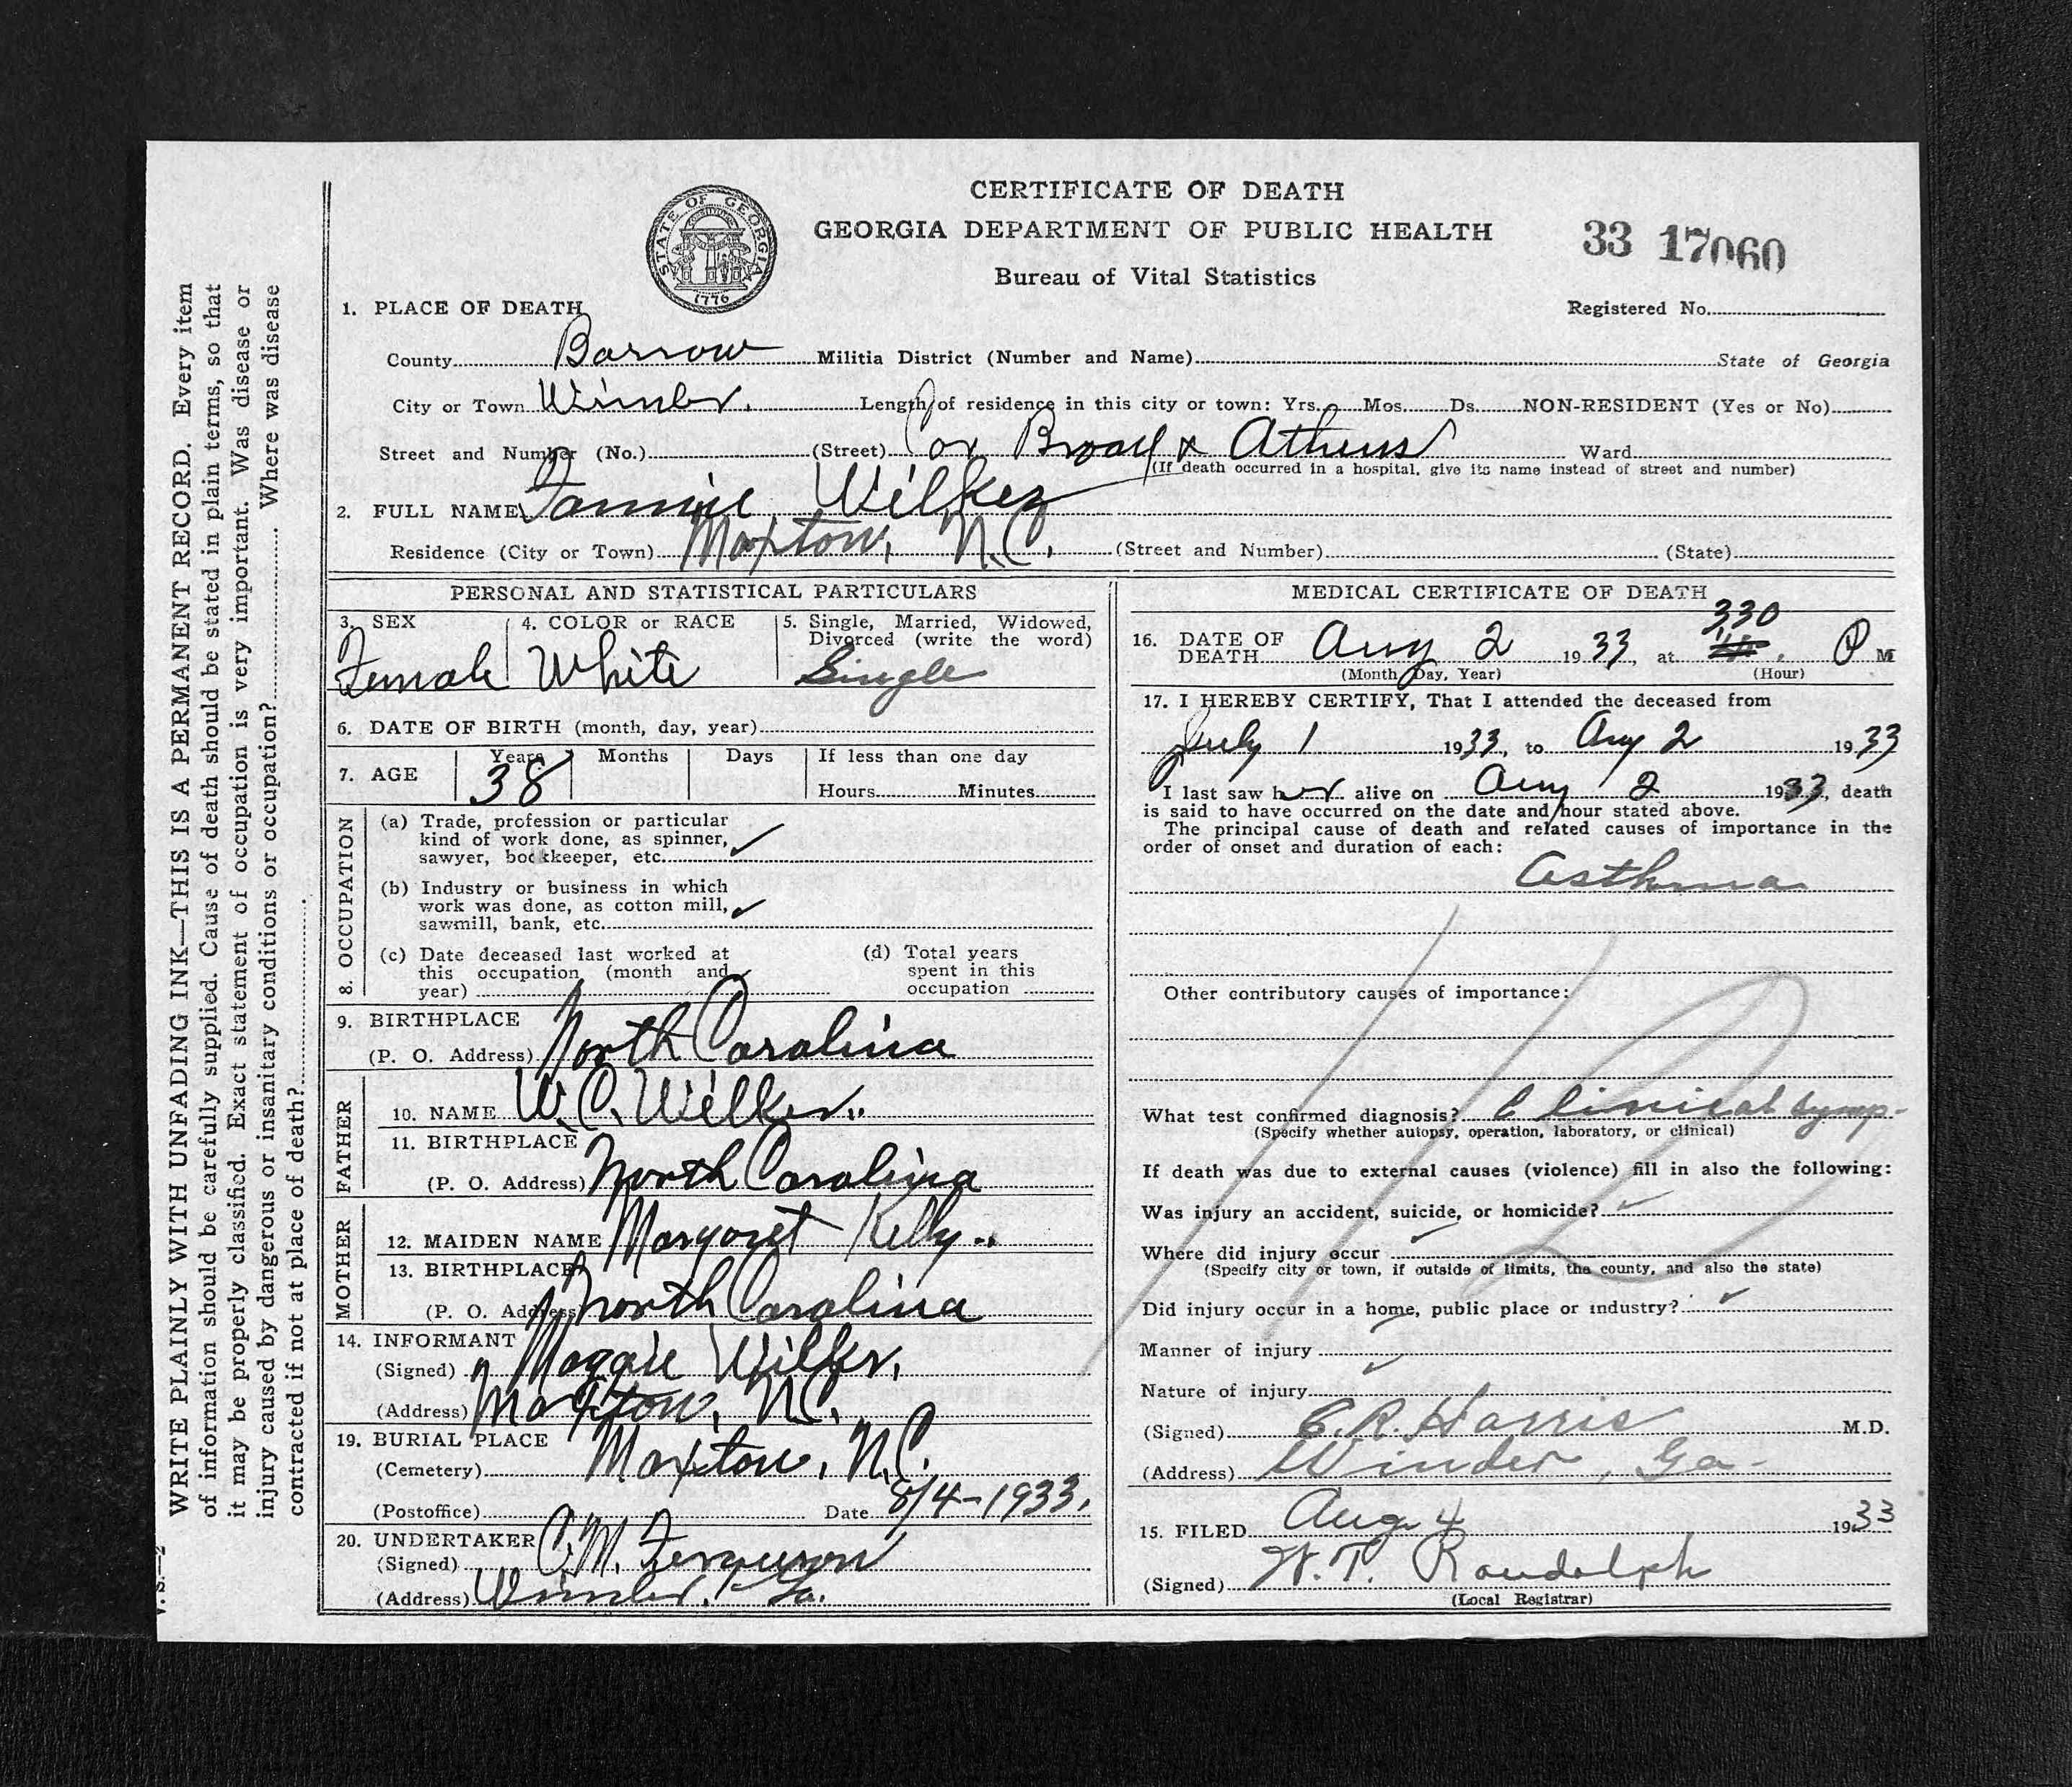 CERTIFICATE OF DEATH
GEORGIA DEPARTMENT OF PUBLIC HEALTH
Bureau of Vital Statistics
33 17060
STATE OF GEORGIA
CONSTITUTION
1776
Registered No.
1. PLACE OF DEATH
County Barrow Militia District (Number and Name) State of Georgia
City or Town Winder. Length of residence in this city or town: Yrs. Mos. Ds. NON-RESIDENT (Yes or No)
Street and Number (No.) (Street) Cor Broad & Athens Ward
(If death occurred in a hospital, give its name instead of street and number)
2. FULL NAME Fannie Wilkes
Residence (City or Town) Maxton, N.C. (Street and Number) (State)
PERSONAL AND STATISTICAL PARTICULARS
3. SEX 4. COLOR or RACE 5. Single, Married, Widowed, Divorced (write the word)
Female White Single
6. DATE OF BIRTH (month, day, year)
7. AGE Years Months Days If less than one day
38 Hours Minutes
8. OCCUPATION
(a) Trade, profession or particular
kind of work done, as spinner,
sawyer, bookkeeper, etc.
(b) Industry or business in which
work was done, as cotton mill,
sawmill, bank, etc.
(c) Date deceased last worked at
this occupation (month and
year)
(d) Total years
spent in this
occupation
9. BIRTHPLACE
(P. O. Address) North Carolina
FATHER
10. NAME W. C. Wilkes.
11. BIRTHPLACE
(P. O. Address) North Carolina
MOTHER
12. MAIDEN NAME Margaret Kelly
13. BIRTHPLACE
(P. O. Address) North Carolina
14. INFORMANT
(Signed) Maggie Wilkes,
(Address) Maxton, N.C.
19. BURIAL PLACE
(Cemetery) Maxton, N.C.
(Postoffice) Date 8/4-1933.
20. UNDERTAKER
(Signed) C. M. Ferguson
(Address) Winder, Ga.
MEDICAL CERTIFICATE OF DEATH
16. DATE OF DEATH Aug 2 1933, at 330 P M
(Month Day, Year) (Hour)
17. I HEREBY CERTIFY, That I attended the deceased from
July 1 1933, to Aug 2 1933
I last saw her alive on Aug 2 1933, death
is said to have occurred on the date and hour stated above.
The principal cause of death and related causes of importance in the
order of onset and duration of each:
Asthma
Other contributory causes of importance:
What test confirmed diagnosis? Clinical Symp-
(Specify whether autopsy, operation, laboratory, or clinical)
If death was due to external causes (violence) fill in also the following:
Was injury an accident, suicide, or homicide?
Where did injury occur
(Specify city or town, if outside of limits, the county, and also the state)
Did injury occur in a home, public place or industry?
Manner of injury
Nature of injury
(Signed) C. R. Harris M.D.
(Address) Winder, Ga-
15. FILED Aug. 4 1933
(Signed) W. T. Randolph
(Local Registrar)
WRITE PLAINLY WITH UNFADING INK—THIS IS A PERMANENT RECORD. Every item
of information should be carefully supplied. Cause of death should be stated in plain terms, so that
it may be properly classified. Exact statement of occupation is very important. Was disease or
injury caused by dangerous or insanitary conditions or occupation? Where was disease
contracted if not at place of death?
V. S.—2